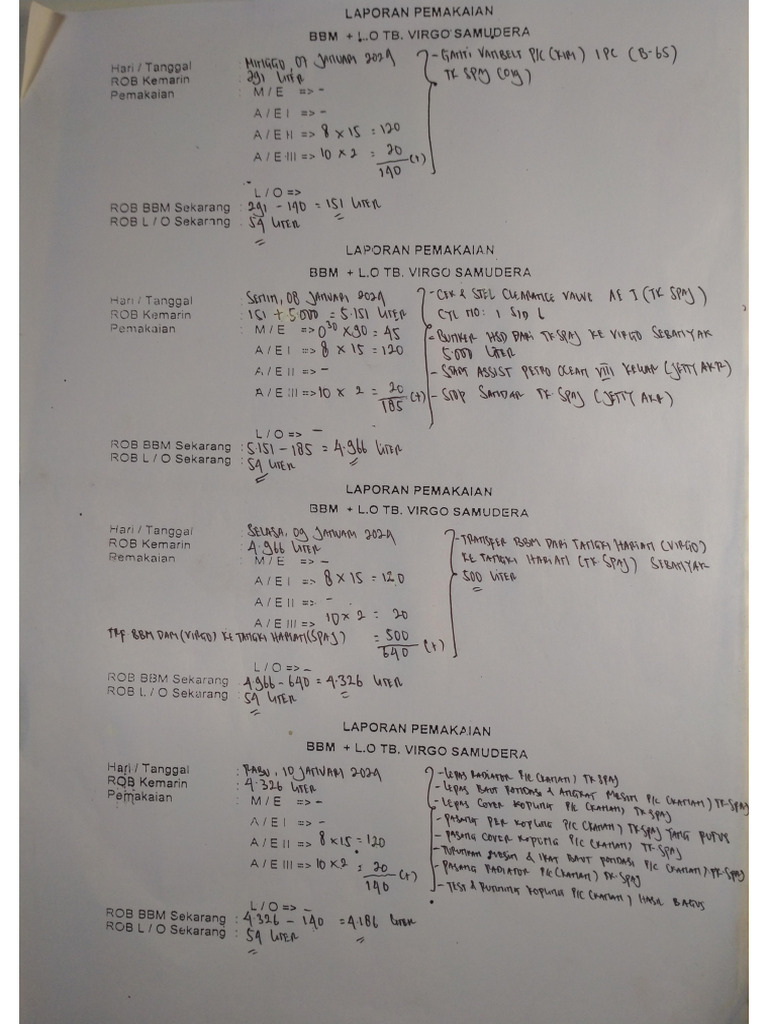 LAPORAN PEMAKAIAN
BBM + L.O TB. VIRGO SAMUDERA
Hari / Tanggal : MINGGU, 07 JANUARI 2024
ROB Kemarin : 291 LITER
Pemakaian : M / E => -
A / E I => -
A / E II => 8 x 15 = 120
A / E III => 10 x 2 = 20
140 (+)
- GANTI VANBELT P/C (KIRI) 1 PC (B-65)
TK SPAJ
L / O =>
ROB BBM Sekarang : 291 - 140 = 151 LITER
ROB L / O Sekarang : 54 LITER
LAPORAN PEMAKAIAN
BBM + L.O TB. VIRGO SAMUDERA
Hari / Tanggal : SENIN, 08 JANUARI 2024
ROB Kemarin : 151 + 5.000 = 5.151 LITER
Pemakaian : M / E => 0³⁰ x 90 = 45
A / E I => 8 x 15 = 120
A / E II => -
A / E III => 10 x 2 = 20
185 (+)
- CEK & STEL CLEARANCE VALVE AE I (TK SPAJ)
CYL NO: 1 S/D 6
- BUNKER HSD DARI TK SPAJ KE VIRGO SEBANYAK
5.000 LITER
- START ASSIST PETRO OCEAN VIII KELUAR (JETTY AKR)
- STOP SANDAR TK. SPAJ (JETTY AKR)
L / O => -
ROB BBM Sekarang : 5.151 - 185 = 4.966 LITER
ROB L / O Sekarang : 54 LITER
LAPORAN PEMAKAIAN
BBM + L.O TB. VIRGO SAMUDERA
Hari / Tanggal : SELASA, 09 JANUARI 2024
ROB Kemarin : 4.966 LITER
Pemakaian : M / E => -
A / E I => 8 x 15 = 120
A / E II => -
A / E III => 10 x 2 = 20
TRF BBM DARI (VIRGO) KE TANGKI HARIAN (SPAJ) = 500
640 (+)
- TRANSFER BBM DARI TANGKI HARIAN (VIRGO)
KE TANGKI HARIAN (TK SPAJ) SEBANYAK
500 LITER
L / O => -
ROB BBM Sekarang : 4.966 - 640 = 4.326 LITER
ROB L / O Sekarang : 54 LITER
LAPORAN PEMAKAIAN
BBM + L.O TB. VIRGO SAMUDERA
Hari / Tanggal : RABU, 10 JANUARI 2024
ROB Kemarin : 4.326 LITER
Pemakaian : M / E => -
A / E I => -
A / E II => 8 x 15 = 120
A / E III => 10 x 2 = 20
140 (+)
- LEPAS RADIATOR P/C (KANAN) TK SPAJ
- LEPAS BAUT PONDASI & ANGKAT MESIN P/C (KANAN) TK-SPAJ
- LEPAS COVER KOPLING P/C (KANAN) TK SPAJ
- PASANG PER KOPLING P/C (KANAN) TK SPAJ YANG PUTUS
- PASANG COVER KOPLING P/C (KANAN) TK-SPAJ
- TURUNKAN MESIN & IKAT BAUT PONDASI P/C (KANAN) TK-SPAJ
- PASANG RADIATOR P/C (KANAN) TK-SPAJ
- TEST & RUNNING KOPLING P/C (KANAN) HASIL BAGUS
L / O => -
ROB BBM Sekarang : 4.326 - 140 = 4.186 LITER
ROB L / O Sekarang : 54 LITER